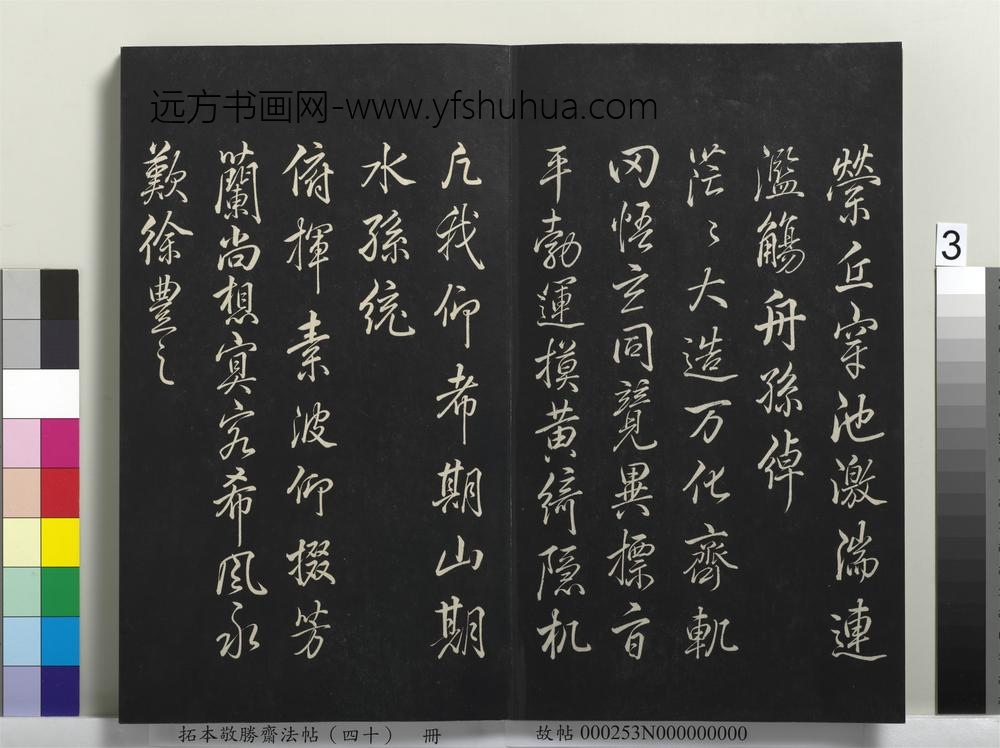 远方书画网-www.yfshuhua.com
縈丘穿池激湍連
濫觴舟孫綽
茫〻大造万化齊軌
罔悟玄同競異摽旨
平勃運摸黄綺隐机
凢我仰希期山期
水孫統
俯揮素波仰掇芳
蘭尚想冥客希風永
歎徐豊之
3
拓本敬勝齋法帖(四十) 冊
故帖 000253N000000000